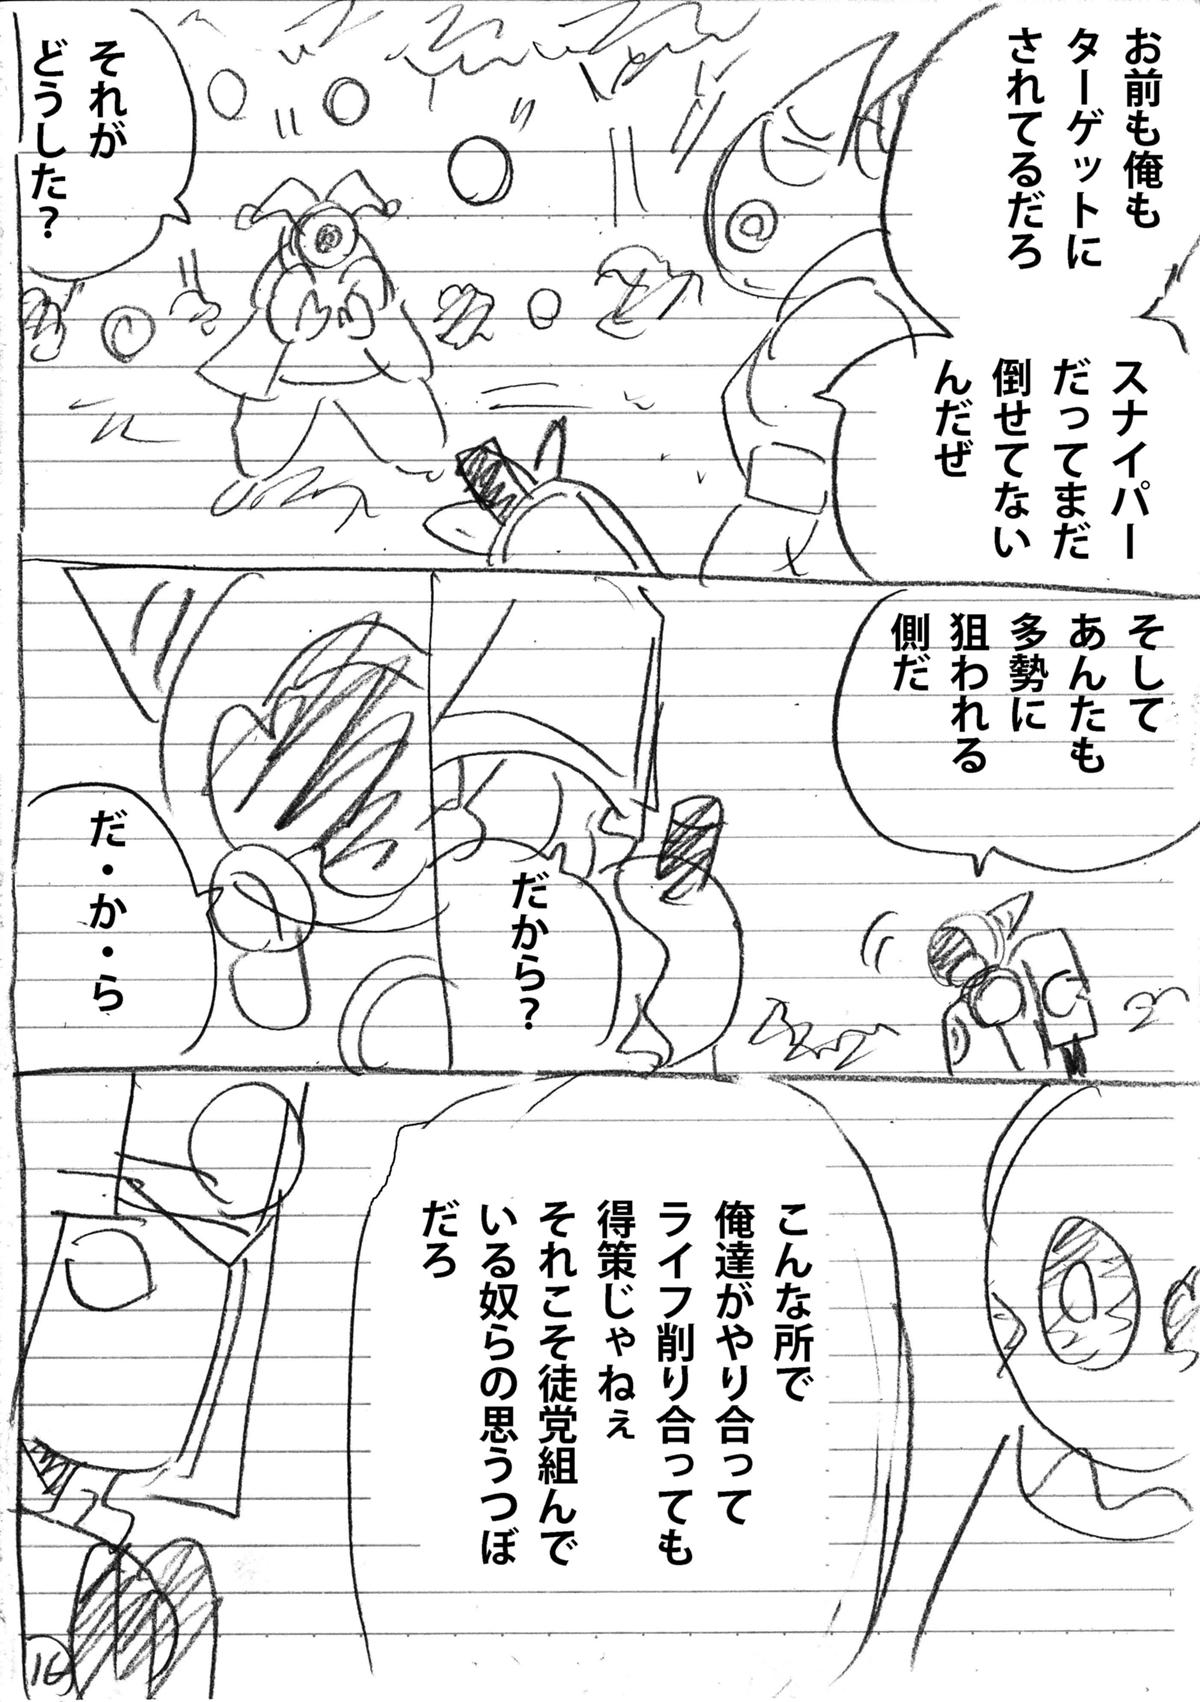 お前も俺も
ターゲットに
されてるだろ
スナイパー
だってまだ
倒せてない
んだぜ
それが
どうした?
そして
あんたも
多勢に
狙われる
側だ
だから?
だ・か・ら
こんな所で
俺達がやり合って
ライフ削り合っても
得策じゃねぇ
それこそ徒党組んで
いる奴らの思うつぼ
だろ
16